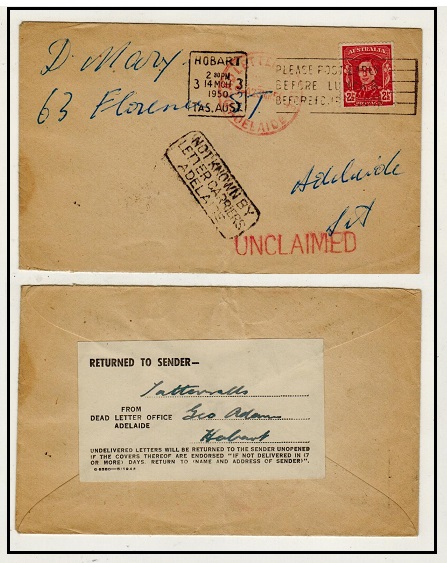 D. Mary.
63 Florence St.
Adelaide
S A
HOBART
2 30PM
3 14 MCH 3
1950
TAS. AUST.
PLEASE POST
BEFORE LU
BEFORE
ADELAIDE
AUSTRALIA
2½
POSTAGE
NOT KNOWN BY
LETTER CARRIERS
ADELAIDE
UNCLAIMED
RETURNED TO SENDER—
Tattersalls
FROM
DEAD LETTER OFFICE Geo Adams
ADELAIDE
Hobart
UNDELIVERED LETTERS WILL BE RETURNED TO THE SENDER UNOPENED
IF THE COVERS THEREOF ARE ENDORSED "IF NOT DELIVERED IN (7
OR MORE) DAYS. RETURN TO (NAME AND ADDRESS OF SENDER)".